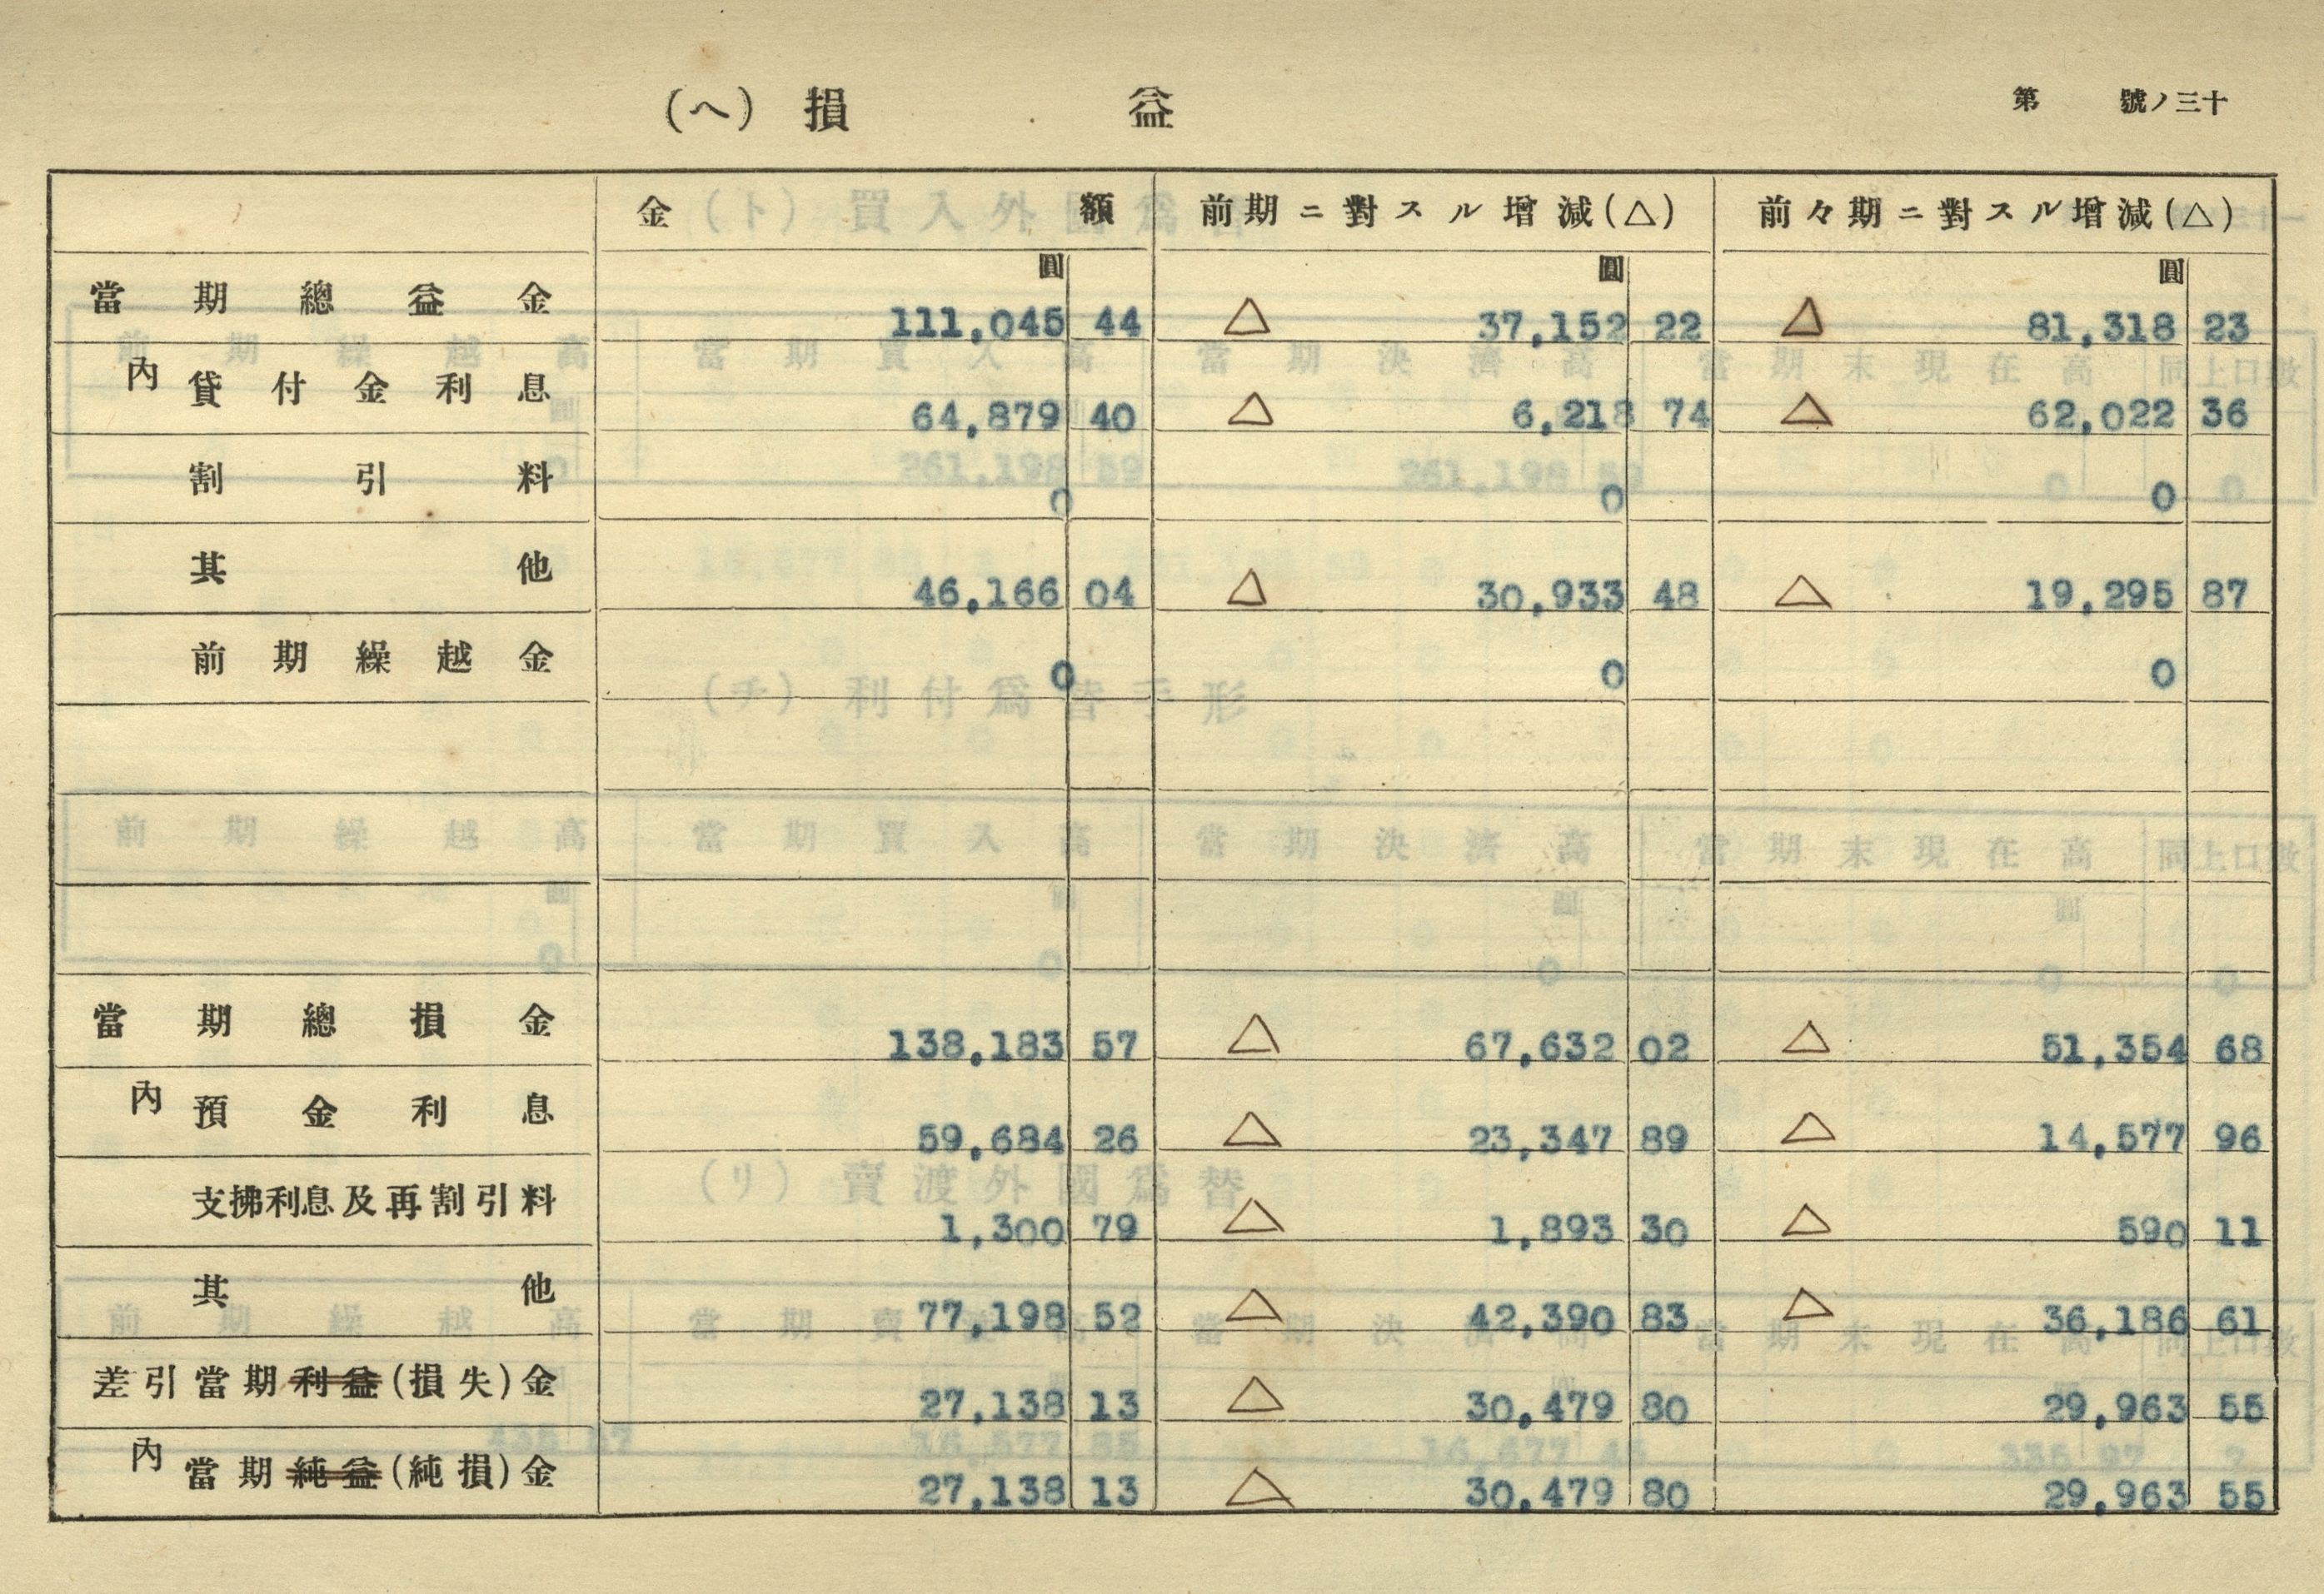 (ヘ) 損益
第 號ノ三十
金額 前期ニ對スル增減(△) 前々期ニ對スル增減(△)
圓 圓 圓
當期總益金 111,045 44 △ 37,152 22 △ 81,318 23
內 貸付金利息 64,879 40 △ 6,218 74 △ 62,022 36
割引料 0 0 0
其他 46,166 04 △ 30,933 48 △ 19,295 87
前期繰越金 0 0 0
當期總損金 138,183 57 △ 67,632 02 △ 51,354 68
內 預金利息 59,684 26 △ 23,347 89 △ 14,577 96
支拂利息及再割引料 1,300 79 △ 1,893 30 △ 590 11
其他 77,198 52 △ 42,390 83 △ 36,186 61
差引當期利益(損失)金 27,138 13 △ 30,479 80 29,963 55
內 當期純益(純損)金 27,138 13 △ 30,479 80 29,963 55